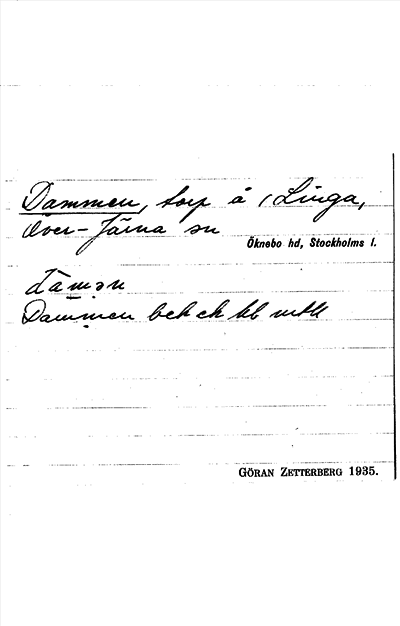 Dammen, torp å Linga,
Över-Järna sn
Öknebo hd, Stockholms l.
dàmən
Dammen bek ek kl
GÖRAN ZETTERBERG 1935.